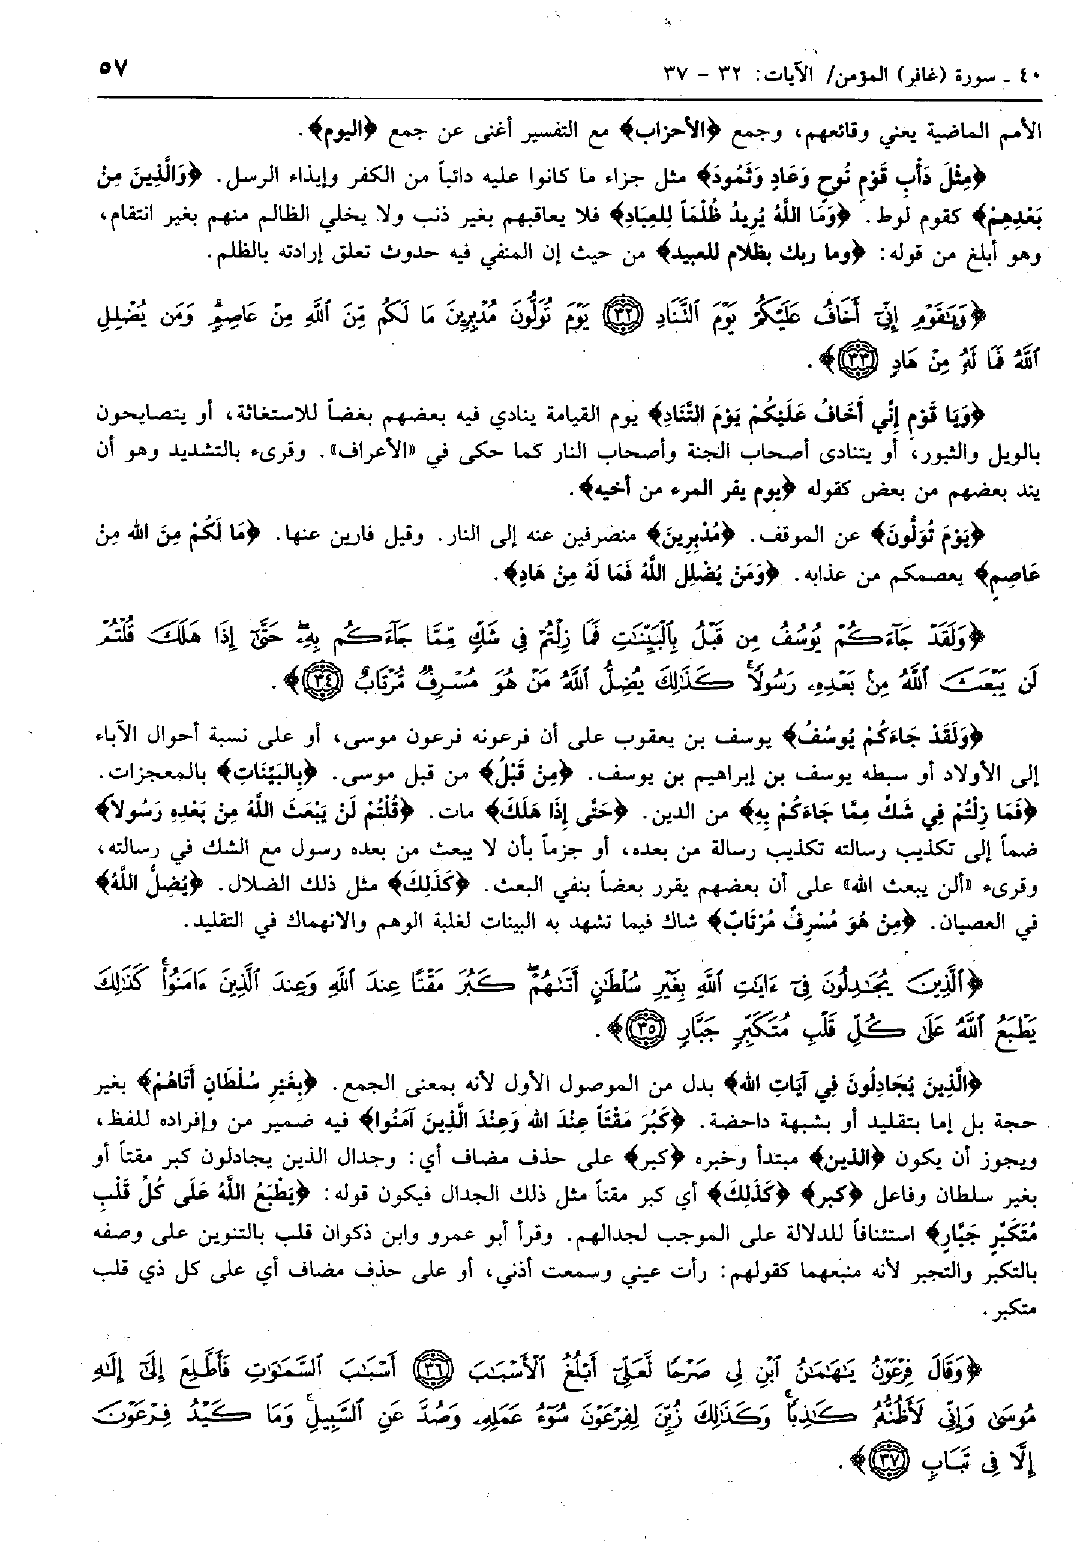 ٤٠ ـ سورة (غافر) المؤمن/ الآيات: ٣٢ ـ ٣٧
٥٧
الأمم الماضية يعني وقائعهم، وجمع ﴿الأحزاب﴾ مع التفسير أغنى عن جمع ﴿اليوم﴾.
﴿مِثْلَ دَأْبِ قَوْمِ نُوحٍ وَعَادٍ وَثَمُودَ﴾ مثل جزاء ما كانوا عليه دائباً من الكفر وإيذاء الرسل. ﴿وَالَّذِينَ مِنْ
بَعْدِهِمْ﴾ كقوم لوط. ﴿وَمَا اللَّهُ يُرِيدُ ظُلْمَاً لِلعِبَادِ﴾ فلا يعاقبهم بغير ذنب ولا يخلي الظالم منهم بغير انتقام،
وهو أبلغ من قوله: ﴿وما ربك بظلام للعبيد﴾ من حيث إن المنفي فيه حدوث تعلق إرادته بالظلم.
﴿وَيَٰقَوْمِ إِنِّىٓ أَخَافُ عَلَيْكُمْ يَوْمَ ٱلتَّنَادِ ﴿٣٢﴾ يَوْمَ تُوَلُّونَ مُدْبِرِينَ مَا لَكُم مِّنَ ٱللَّهِ مِنْ عَاصِمٍ وَمَن يُضْلِلِ
ٱللَّهُ فَمَا لَهُۥ مِنْ هَادٍ ﴿٣٣﴾﴾.
﴿وَيَا قَوْمِ إِنِّي أَخَافُ عَلَيْكُمْ يَوْمَ التَّنَادِ﴾ يوم القيامة ينادي فيه بعضهم بغضاً للاستغاثة، أو يتصايحون
بالويل والثبور، أو يتنادى أصحاب الجنة وأصحاب النار كما حكى في «الأعراف». وقرىء بالتشديد وهو أن
يند بعضهم من بعض كقوله ﴿يوم يفر المرء من أخيه﴾.
﴿يَوْمَ تُوَلُّونَ﴾ عن الموقف. ﴿مُدْبِرِينَ﴾ منصرفين عنه إلى النار. وقيل فارين عنها. ﴿مَا لَكُمْ مِنَ الله مِنْ
عَاصِمٍ﴾ يعصمكم من عذابه. ﴿وَمَنْ يُضْلِلِ اللَّهُ فَمَا لَهُ مِنْ هَادٍ﴾.
﴿وَلَقَدْ جَآءَكُمْ يُوسُفُ مِن قَبْلُ بِٱلْبَيِّنَٰتِ فَمَا زِلْتُمْ فِى شَكٍّ مِّمَّا جَآءَكُم بِهِۦ حَتَّىٰٓ إِذَا هَلَكَ قُلْتُمْ
لَن يَبْعَثَ ٱللَّهُ مِنۢ بَعْدِهِۦ رَسُولًا كَذَٰلِكَ يُضِلُّ ٱللَّهُ مَنْ هُوَ مُسْرِفٌ مُّرْتَابٌ ﴿٣٤﴾﴾.
﴿وَلَقَدْ جَاءَكُمْ يُوسُفُ﴾ يوسف بن يعقوب على أن فرعونه فرعون موسى، أو على نسبة أحوال الآباء
إلى الأولاد أو سبطه يوسف بن إبراهيم بن يوسف. ﴿مِن قَبْلُ﴾ من قبل موسى. ﴿بِالبَيِّنَاتِ﴾ بالمعجزات.
﴿فَمَا زِلْتُمْ فِي شَكٍّ مِمَّا جَاءَكُمْ بِهِ﴾ من الدين. ﴿حَتَّى إِذَا هَلَكَ﴾ مات. ﴿قُلْتُمْ لَنْ يَبْعَثَ اللَّهُ مِنْ بَعْدِهِ رَسُولاً﴾
ضماً إلى تكذيب رسالته تكذيب رسالة من بعده، أو جزماً بأن لا يبعث من بعده رسول مع الشك في رسالته،
وقرىء «ألن يبعث الله» على أن بعضهم يقرر بعضاً بنفي البعث. ﴿كَذَلِكَ﴾ مثل ذلك الضلال. ﴿يُضِلُّ اللَّهُ﴾
في العصيان. ﴿مِنْ هُوَ مُسْرِفٌ مُرْتَابٌ﴾ شاك فيما تشهد به البينات لغلبة الوهم والانهماك في التقليد.
﴿ٱلَّذِينَ يُجَٰدِلُونَ فِىٓ ءَايَٰتِ ٱللَّهِ بِغَيْرِ سُلْطَٰنٍ أَتَىٰهُمْ كَبُرَ مَقْتًا عِندَ ٱللَّهِ وَعِندَ ٱلَّذِينَ ءَامَنُوا۟ كَذَٰلِكَ
يَطْبَعُ ٱللَّهُ عَلَىٰ كُلِّ قَلْبِ مُتَكَبِّرٍ جَبَّارٍ ﴿٣٥﴾﴾.
﴿الَّذِينَ يُجَادِلُونَ فِي آيَاتِ الله﴾ بدل من الموصول الأول لأنه بمعنى الجمع. ﴿بِغَيْرِ سُلْطَانٍ أَتَاهُمْ﴾ بغير
حجة بل إما بتقليد أو بشبهة داحضة. ﴿كَبُرَ مَقْتَاً عِنْدَ الله وَعِنْدَ الَّذِينَ آمَنُوا﴾ فيه ضمير من وإفراده للفظ،
ويجوز أن يكون ﴿الذين﴾ مبتدأ وخبره ﴿كبر﴾ على حذف مضاف أي: وجدال الذين يجادلون كبر مقتاً أو
بغير سلطان وفاعل ﴿كبر﴾ ﴿كَذَلِكَ﴾ أي كبر مقتاً مثل ذلك الجدال فيكون قوله: ﴿يَطْبَعُ اللَّهُ عَلَى كُلِّ قَلْبِ
مُتَكَبِّرٍ جَبَّارٍ﴾ استئنافاً للدلالة على الموجب لجدالهم. وقرأ أبو عمرو وابن ذكوان قلب بالتنوين على وصفه
بالتكبر والتجبر لأنه منبعهما كقولهم: رأت عيني وسمعت أذني، أو على حذف مضاف أي على كل ذي قلب
متكبر.
﴿وَقَالَ فِرْعَوْنُ يَٰهَٰمَٰنُ ٱبْنِ لِى صَرْحًا لَّعَلِّىٓ أَبْلُغُ ٱلْأَسْبَٰبَ ﴿٣٦﴾ أَسْبَٰبَ ٱلسَّمَٰوَٰتِ فَأَطَّلِعَ إِلَىٰٓ إِلَٰهِ
مُوسَىٰ وَإِنِّى لَأَظُنُّهُۥ كَٰذِبًا وَكَذَٰلِكَ زُيِّنَ لِفِرْعَوْنَ سُوٓءُ عَمَلِهِۦ وَصُدَّ عَنِ ٱلسَّبِيلِ وَمَا كَيْدُ فِرْعَوْنَ
إِلَّا فِى تَبَابٍ ﴿٣٧﴾﴾.